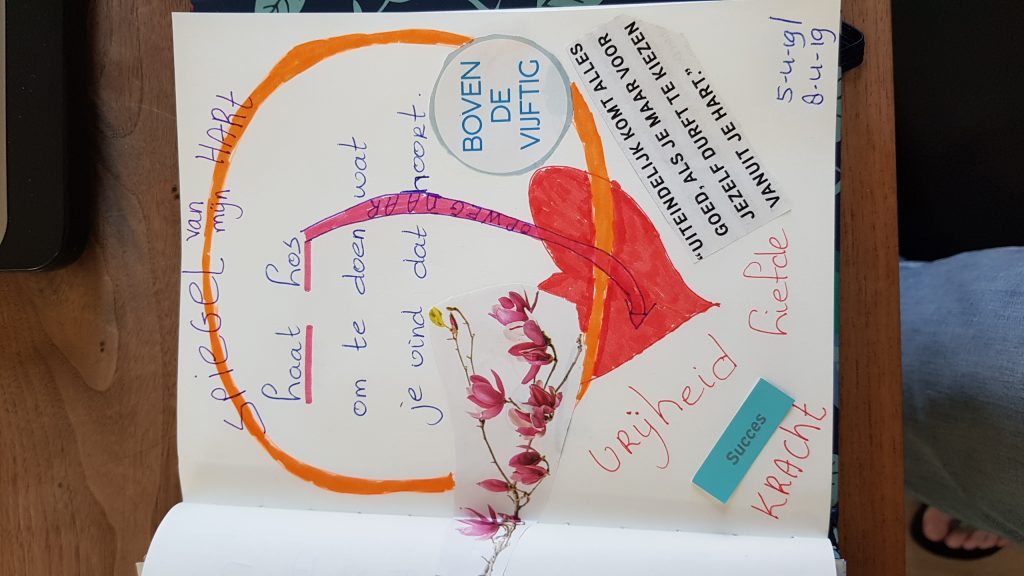 SPIEGEL van
mijn HART
Laat los
om te doen wat
je vind dat hoort.
BOVEN
DE
VIJFTIG
OP WEG
"UITEINDELIJK KOMT ALLES
GOED, ALS JE MAAR VOOR
JEZELF DURFT TE KIEZEN
VANUIT JE HART."
5-4-19/
8-4-19
VRijheid
Liefde
Succes
KRACHT